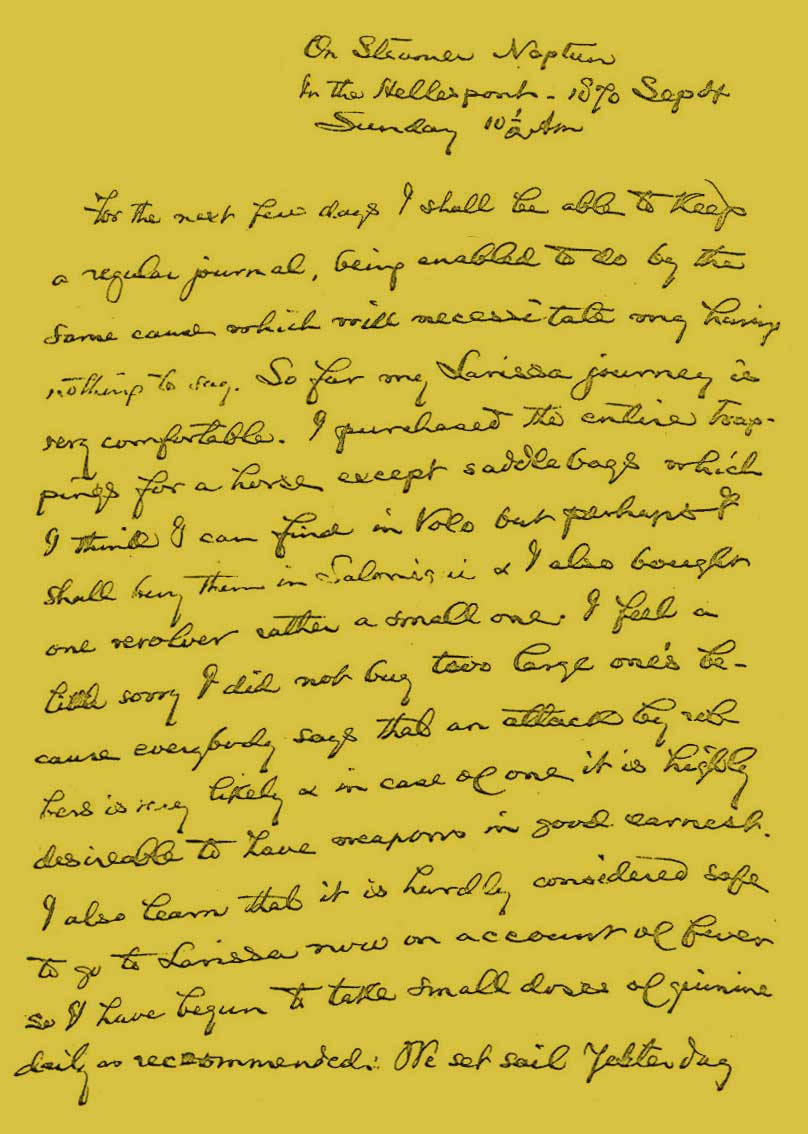 On Steamer Neptun
In the Hellespont - 1870 Sept 4
Sunday 10 1/2 Am
For the next few days I shall be able to keep
a regular journal, being enabled to do by the
same cause which will necessitate my having
nothing to say. So far my Larissa journey is
very comfortable. I purchased the entire trap-
pings for a horse except saddlebags which
I think I can find in Volo but perhaps I
shall buy them in & I also bought
one revolver rather a small one. I feel a
little sorry I did not buy two large one's be-
cause everybody says that an attack by rob
bers is very likely & in case of one it is highly
desireable to have weapons in good earnest.
I also learn that it is hardly considered safe
to go to Larissa now on account of fever
so I have begun to take small doses of quinine
daily as recommended. We set sail Yesterday